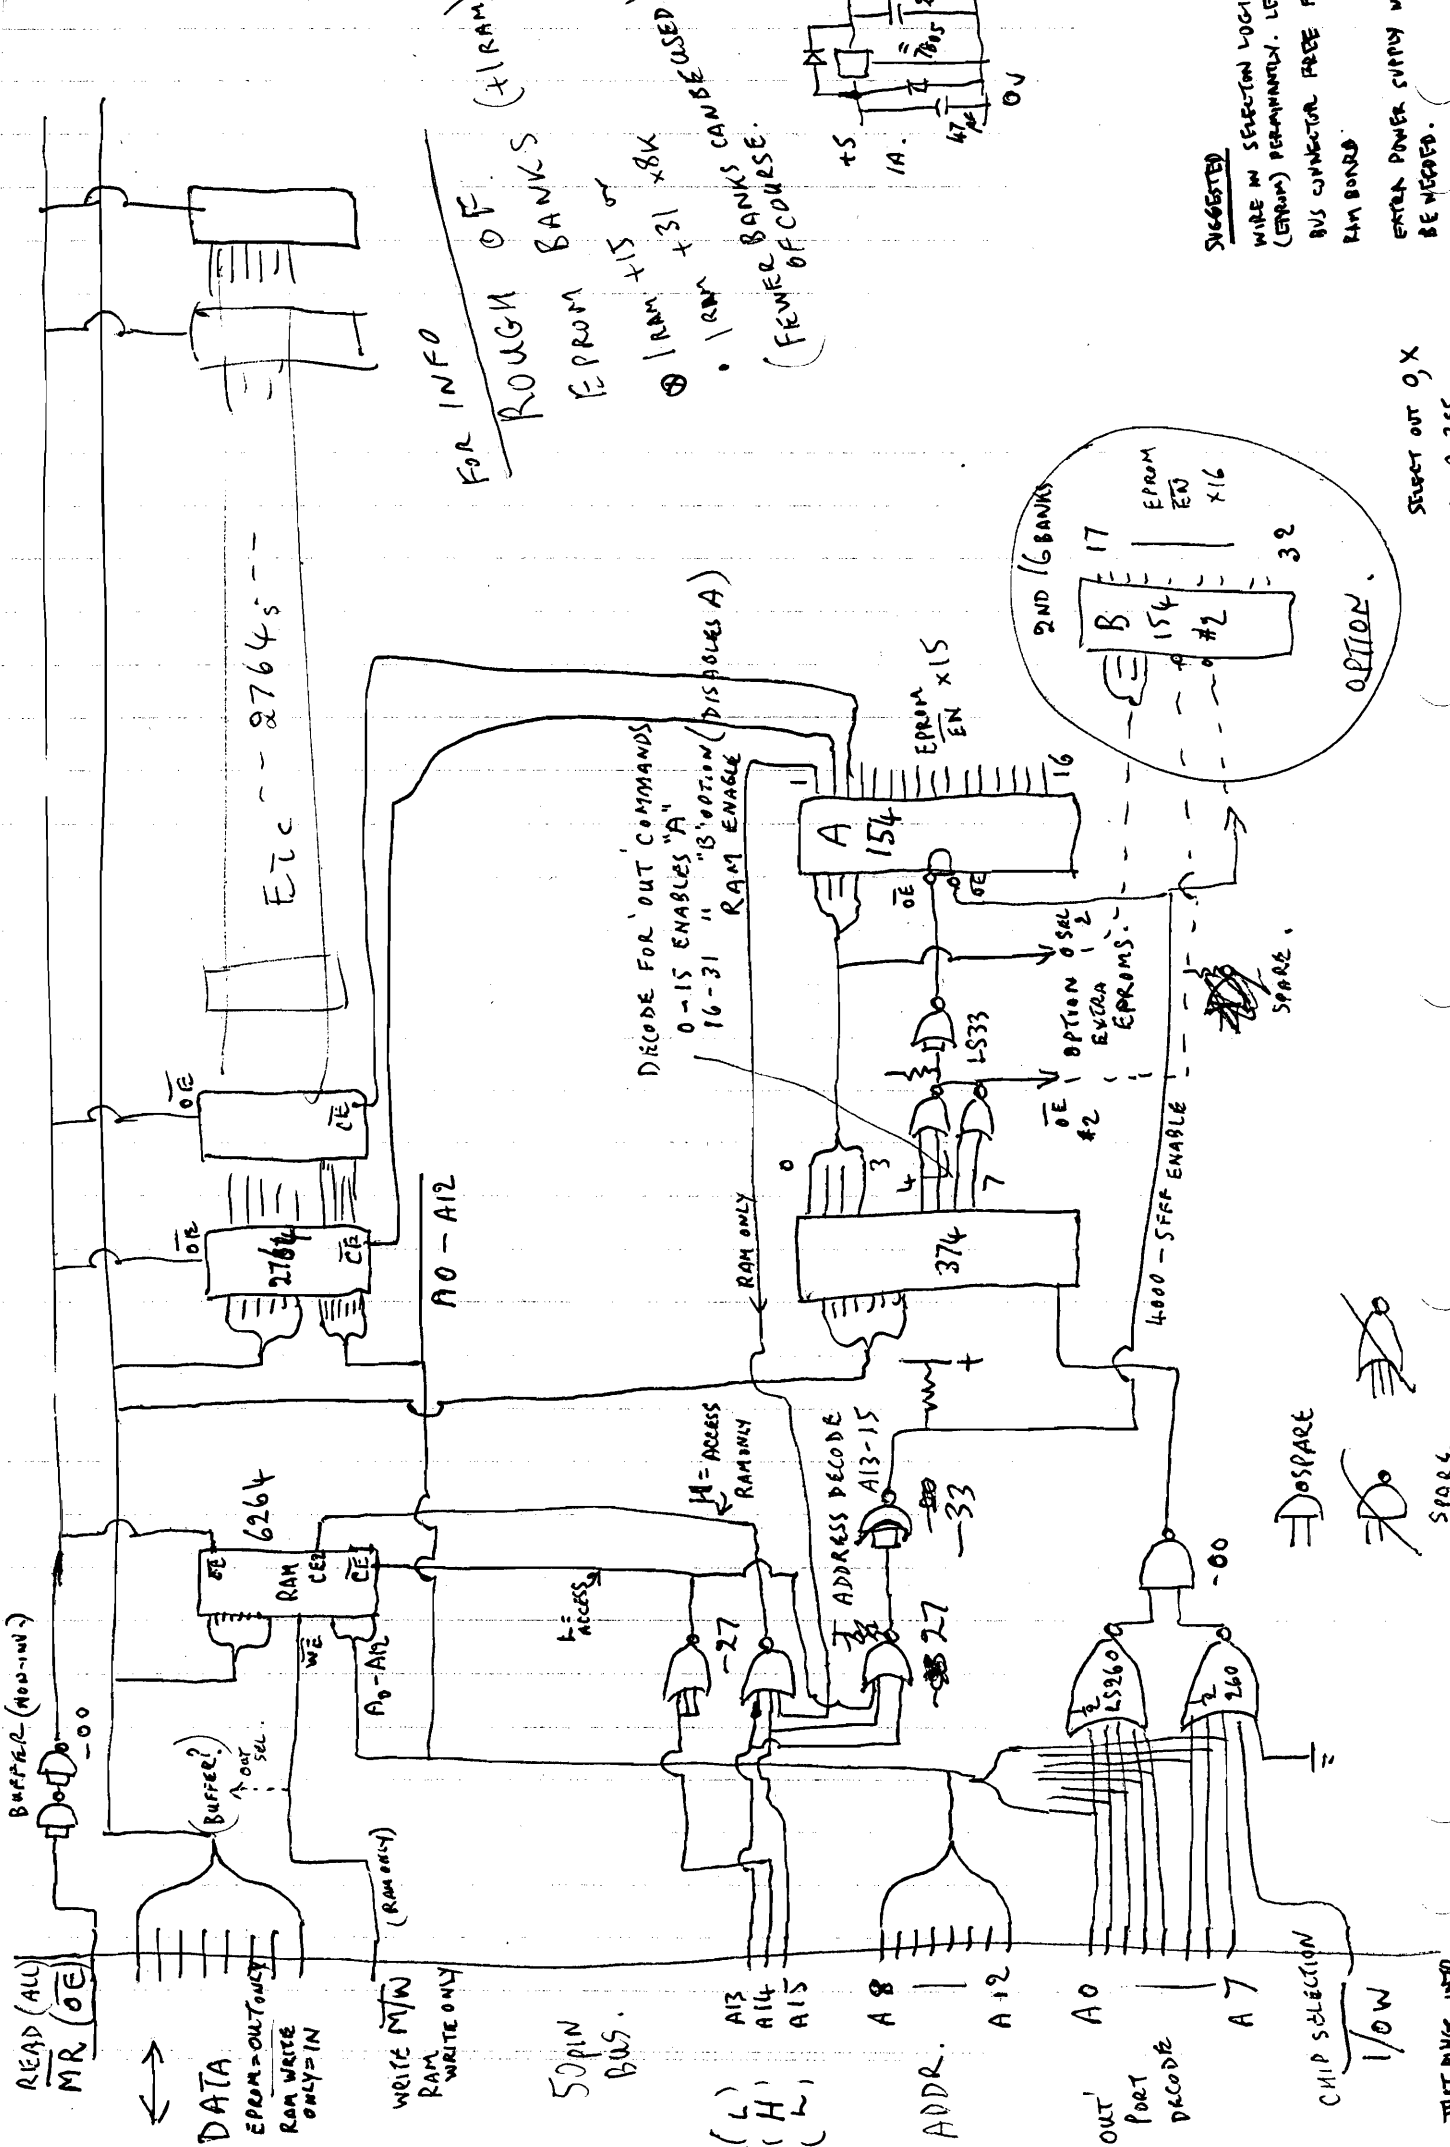 READ (ALL)
MR (OE)
BUFFER (NON-INV.)
-00
DATA
EPROM=OUT ONLY
RAM WRITE
ONLY=IN
(BUFFER?)
OUT
SEL.
WRITE M/W
RAM
WRITE ONLY
(RAM ONLY)
50 PIN
BUS.
(L) A13
(H) A14
(L) A15
ADDR.
A8
A12
OUT
PORT
DECODE
A0
A7
CHIP SELECTION
I/OW
OE
6264
RAM
CE2
CE
WE
A0-A12
L=
ACCESS
H=ACCESS
RAM ONLY
-27
ADDRESS DECODE
A13-15
27
-33
½
LS260
½
260
-00
SPARE
SPARE
OE
2764
CE
OE
CE
A0-A12
ETC --- 2764s ---
RAM ONLY
374
0
3
4
7
LS33
DECODE FOR 'OUT' COMMANDS
0-15 ENABLES "A"
16-31 " "B" OPTION (DISABLES A)
RAM ENABLE
A
154
OE
OE
1
16
EPROM
EN x15
OE
#2
OPTION
EXTRA
EPROMS.
4000-5FFF ENABLE
SPARE.
2ND 16 BANKS
B
154
#2
17
32
EPROM
EN
x16
OPTION.
FOR INFO
ROUGH OF
EPROM BANKS (+1RAM)
1 RAM +15 or
1 RAM +31 x8K
(FEWER BANKS CAN BE USED
OF COURSE.
+5
1A.
47
7805
0V
SUGGESTED
WIRE IN SELECTION LOGI
(EPROM) PERMINANTLY. LE
BUS CONNECTOR FREE F
RAM BOARD
EXTRA POWER SUPPLY
BE NEEDED.
SELECT OUT 0,X